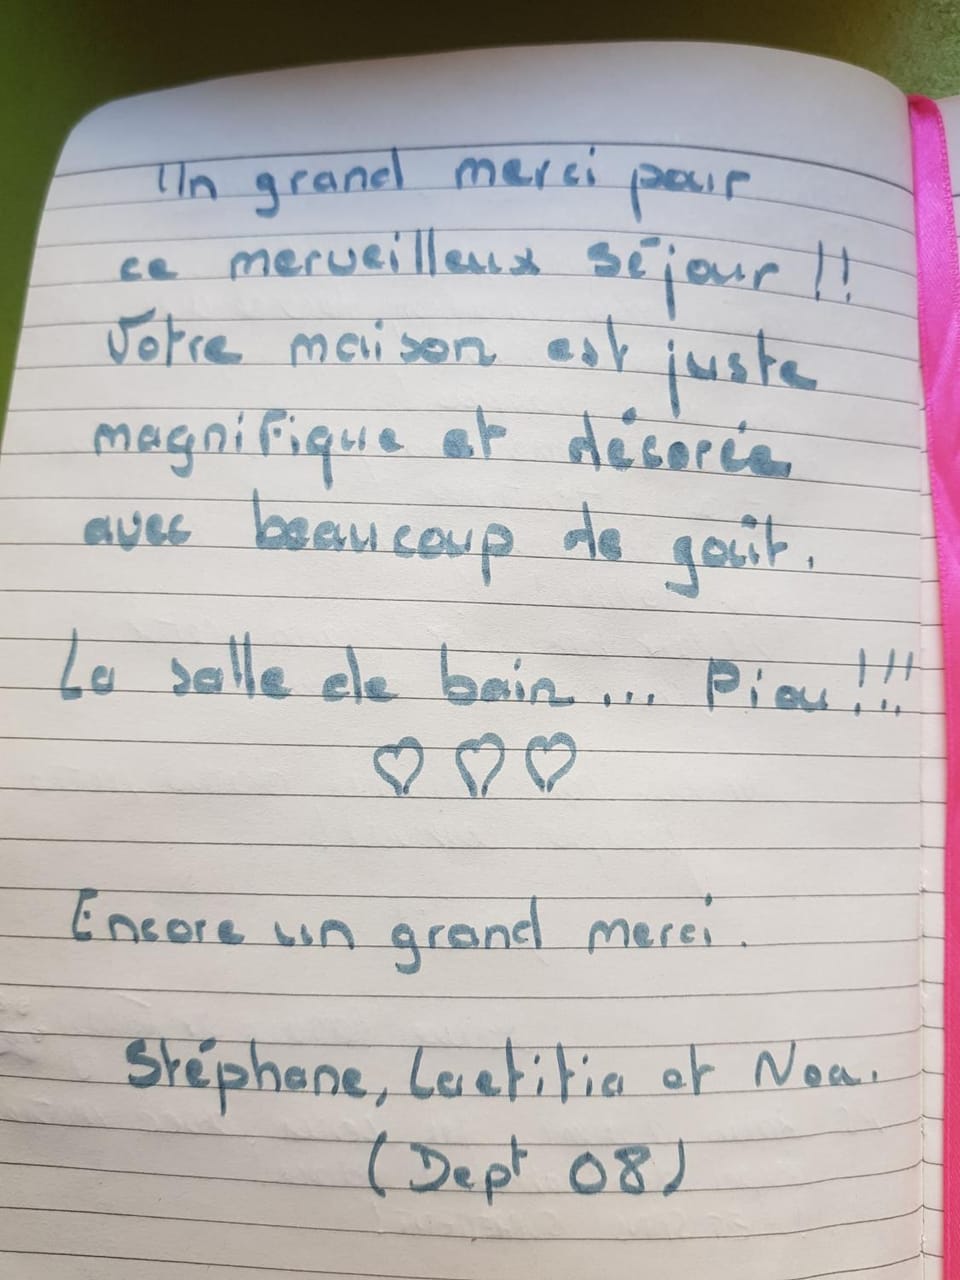 Un grand merci pour
ce merveilleux séjour !!
Votre maison est juste
magnifique et décorée
avec beaucoup de goût.
La salle de bain ... Piou !!!
Encore un grand merci.
Stéphane, Laetitia et Noa.
(Dept 08)